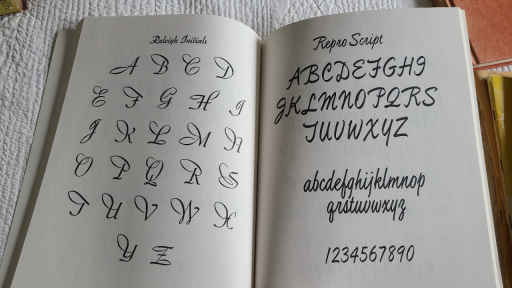 Raleigh Initials
A B C D
E F G H I
J K L M N
O P Q R S
T U V W X
Y Z
Repro Script
ABCDEFGHI
JKLMNOPQRS
TUVWXYZ
abcdefghijklmnop
qrstuvwxyz
1234567890